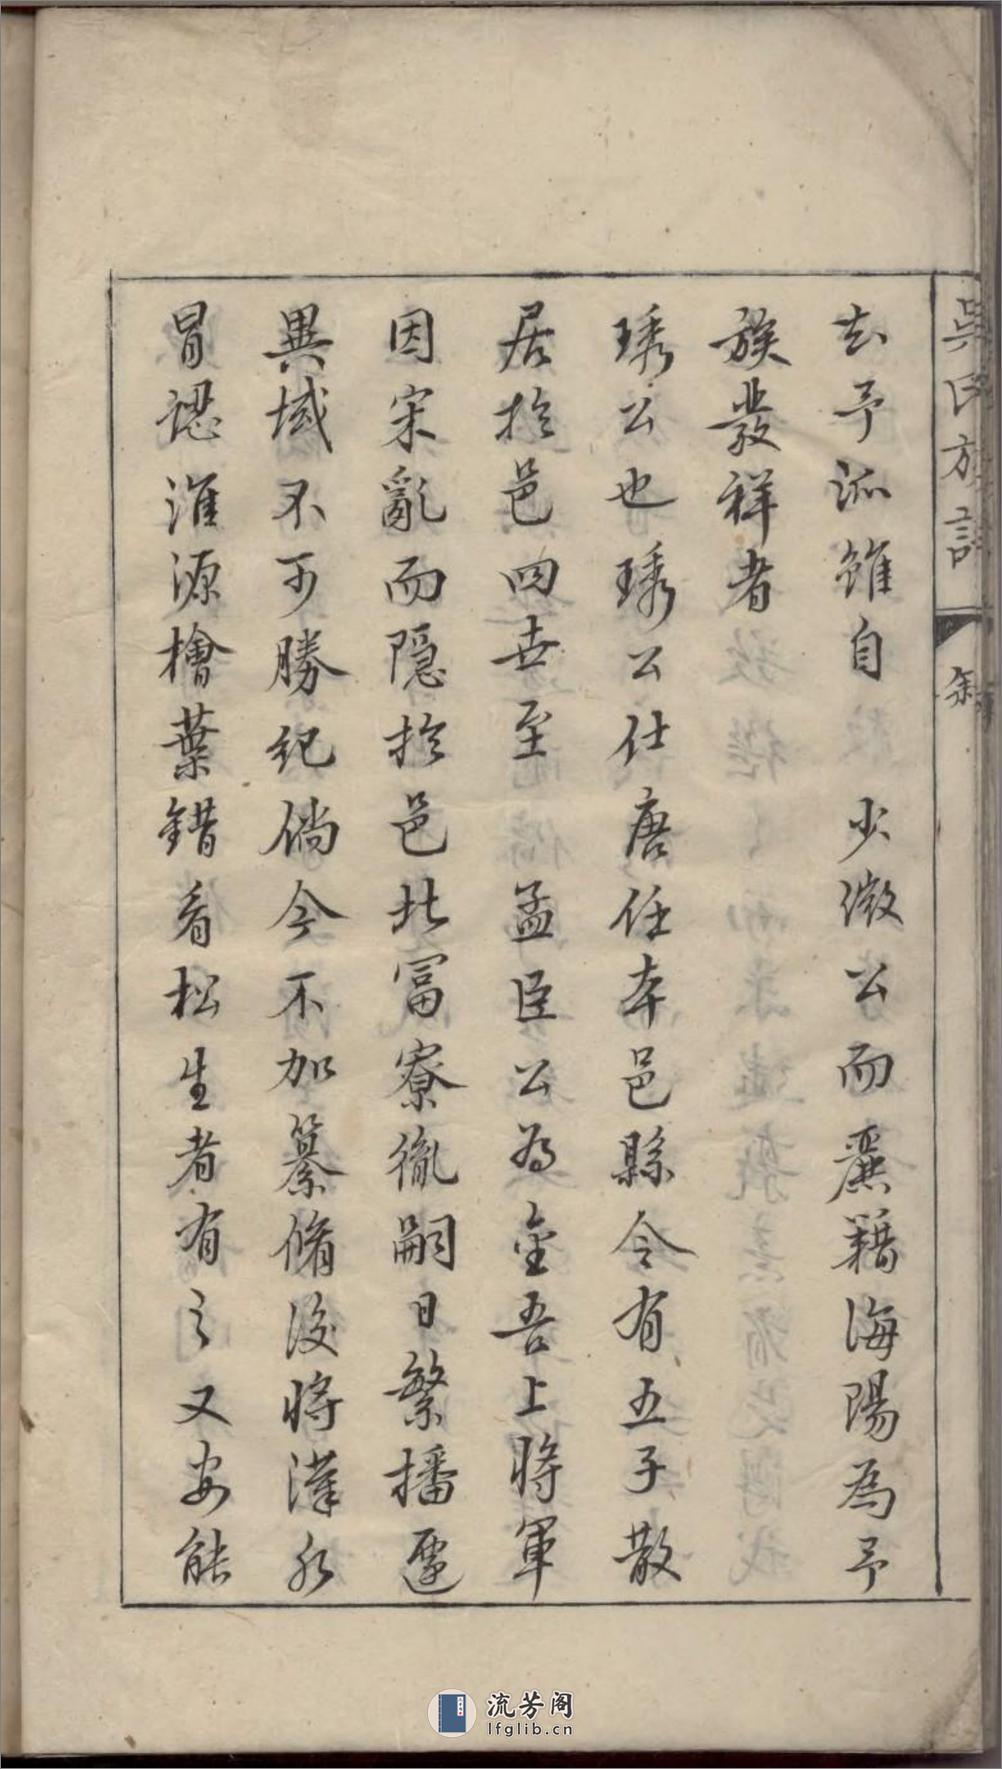 吳氏族譜
敘
去予派雖自 少微公而麗籍海陽為予
族發祥者
琇公也琇公仕唐任本邑縣令有五子散
居於邑四世至 孟臣公為金吾上將軍
因宋亂而隱於邑北富寮徹嗣日繁播遷
異域不可勝紀倘今不加纂脩後將漢水
冒諶淮源檜葉錯看松生者有之又安能
流芳阁
lfglib.cn